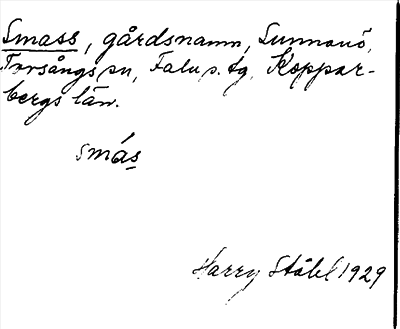 Smass, gårdsnamn, Sunnanö,
Torsångs sn, Falu s. tg, Koppar-
bergs län.
smás
Harry Ståhl 1929